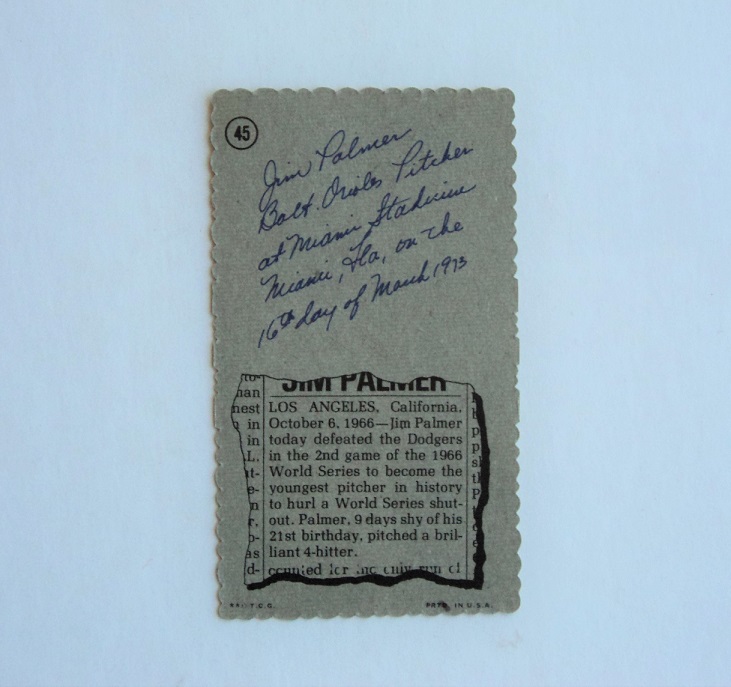 45
Jim Palmer
Balt. Orioles Pitcher
at Miami Stadium
Miami, Fla, on the
16th day of March 1973
JIM PALMER
LOS ANGELES, California,
October 6, 1966—Jim Palmer
today defeated the Dodgers
in the 2nd game of the 1966
World Series to become the
youngest pitcher in history
to hurl a World Series shut-
out. Palmer, 9 days shy of his
21st birthday, pitched a bril-
liant 4-hitter.
T.C.G. PRTD. IN U.S.A.